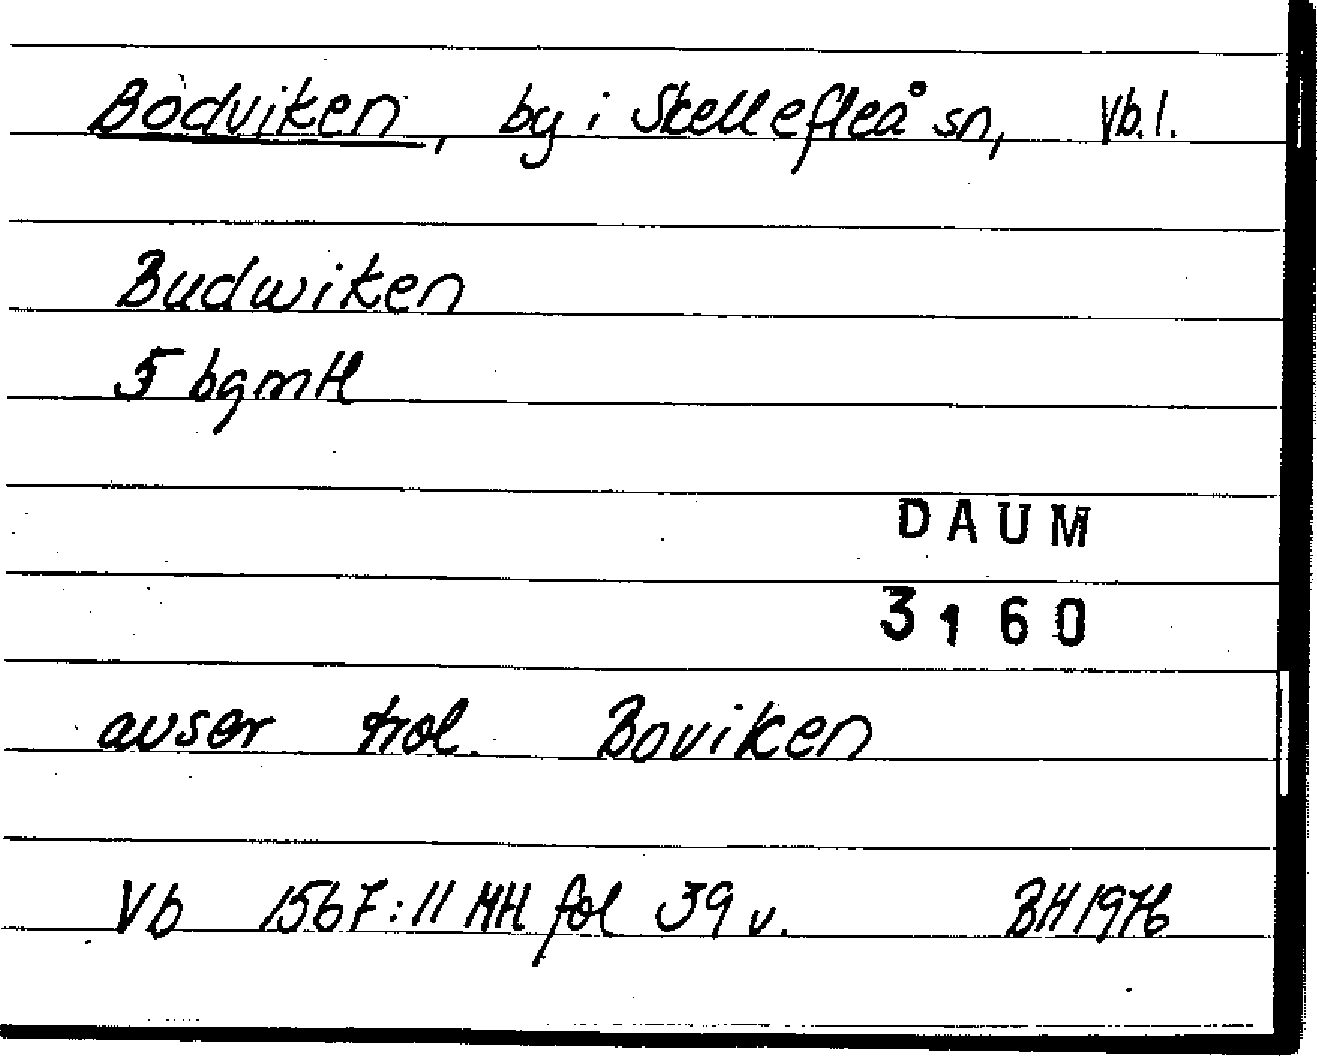 Bodviken, by i Skellefteå sn, Vb. l.
Budwiken
5 bgmH
DAUM
3160
avser trol. Boviken
Vb 1567:11 MH fol 39 v. BH 1976